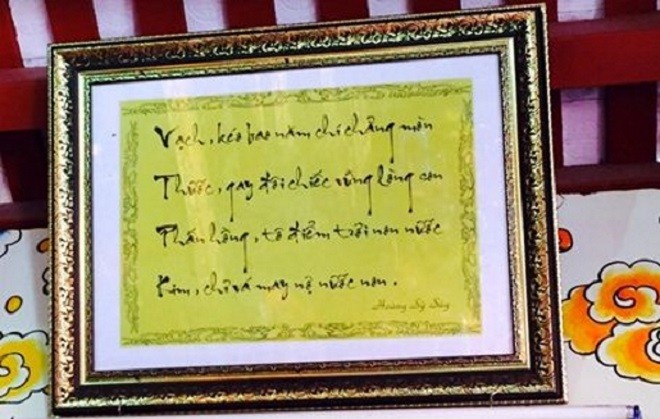 Vạch, kéo bao năm chí chẳng mòn
Thước, quay đôi chiếc vững lòng con
Phấn hồng, tô điểm trời non nước
Kim, chỉ vá may nợ nước non.
Hoàng Sỹ